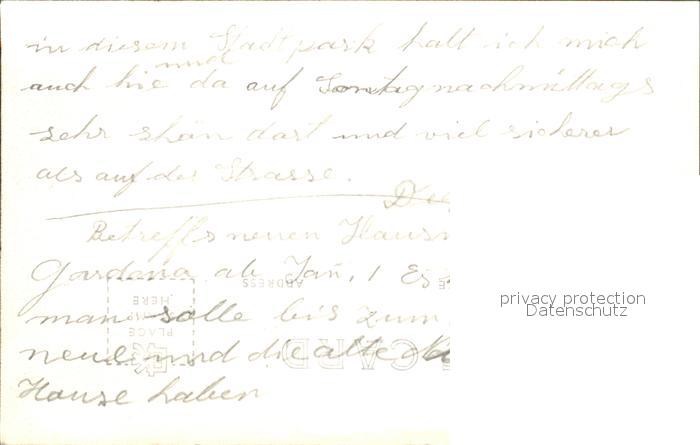 in diesem Stadtpark halt ich mich
und
auch hie da auf Sontagnachmittags
sehr shön dort und viel sicherer
als auf der Strasse.
Betreffs neuen
Gardena ab Jan, 1 Es
man solle bis zum
neue und die alte
Hause haben
ADDRESS
PLACE
HERE
CARD
privacy protection
Datenschutz